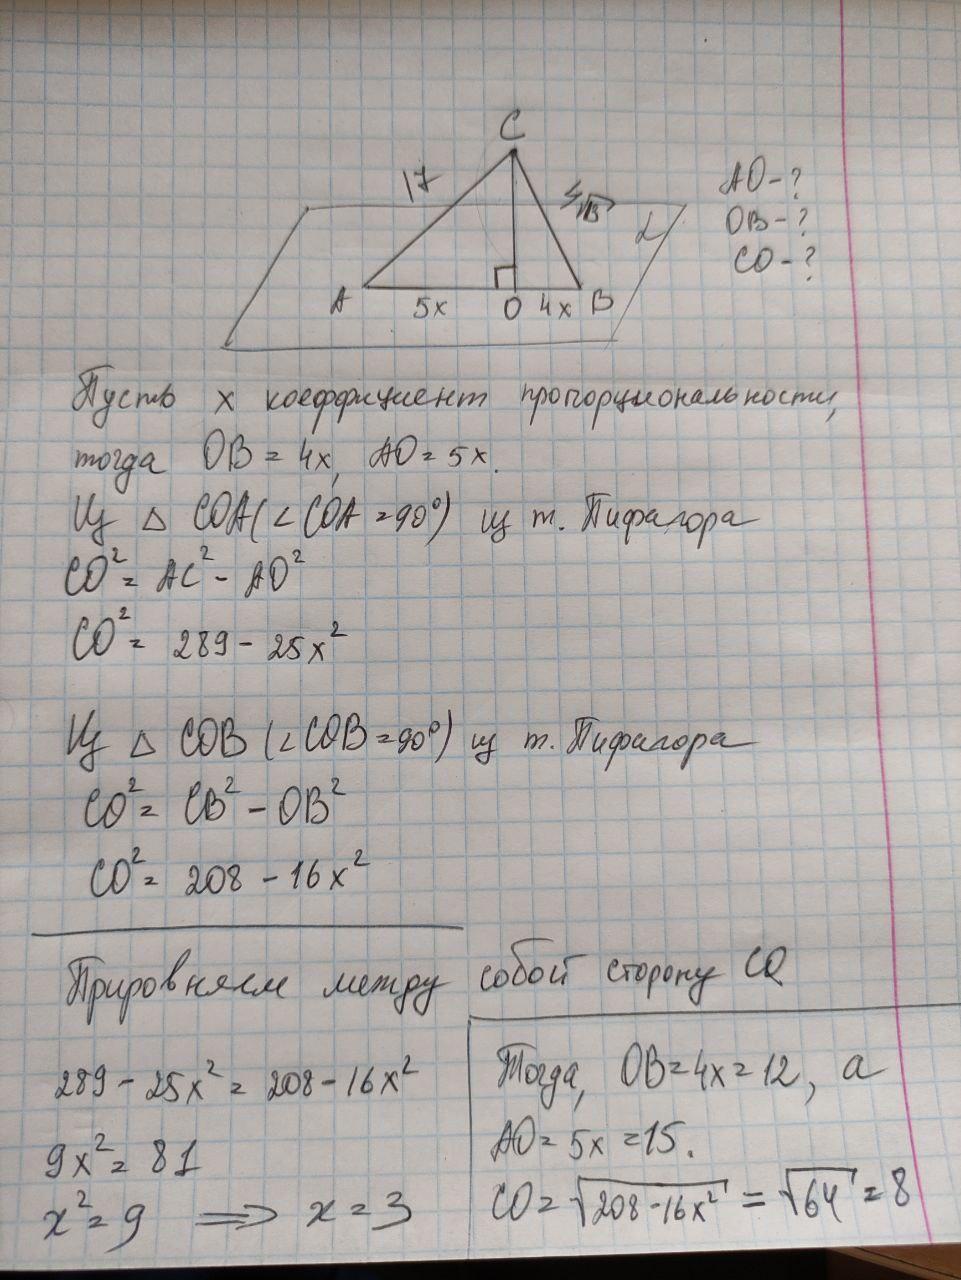 C
17
4√13
α
AO-?
OB-?
CO-?
A 5x O 4x B
Пусть x коеффициент пропорциональности,
тогда OB = 4x, AO = 5x.
Из △ COA (∠COA = 90°) из т. Пифагора
CO² = AC² - AO²
CO² = 289 - 25x²
Из △ COB (∠COB = 90°) из т. Пифагора
CO² = CB² - OB²
CO² = 208 - 16x²
Приравняем между собой сторону CO
289 - 25x² = 208 - 16x²
9x² = 81
x² = 9 ⟹ x = 3
Тогда, OB = 4x = 12, а
AO = 5x = 15.
CO = √(208 - 16x²) = √64 = 8